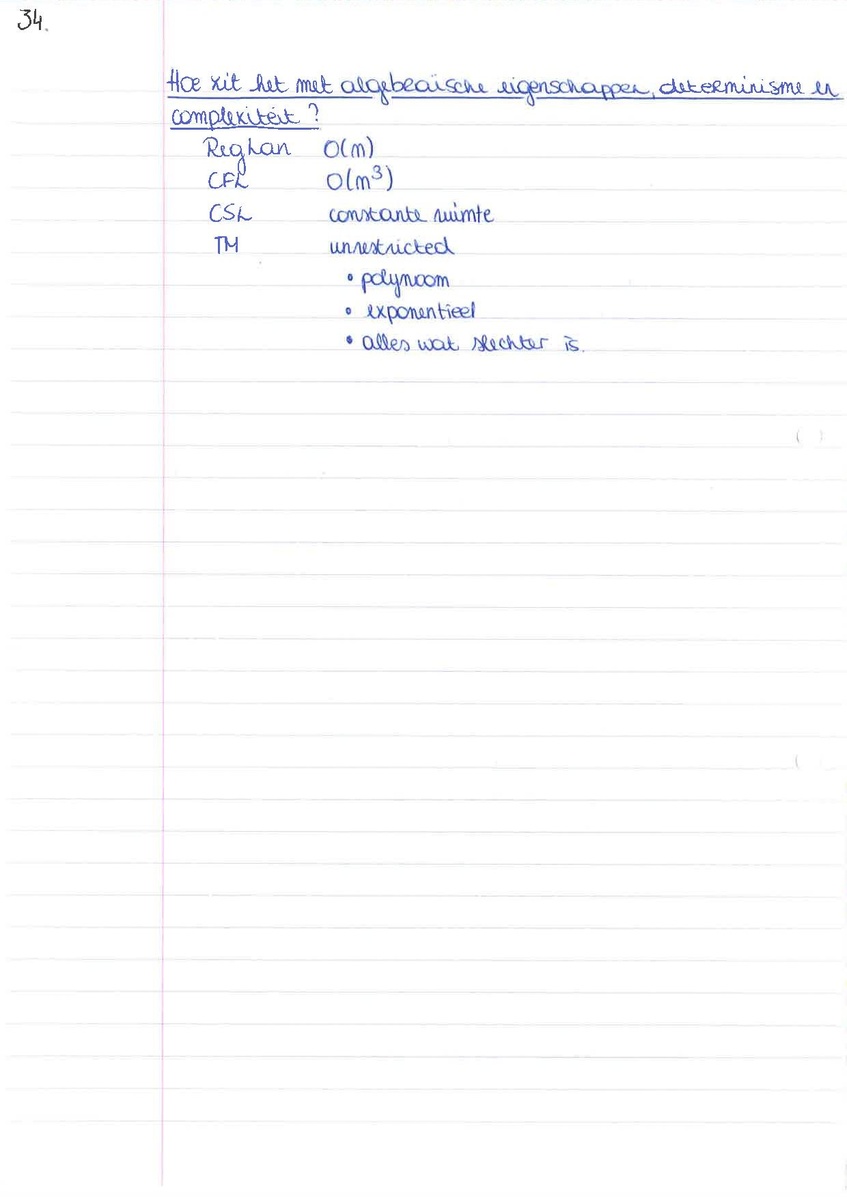 34.
Hoe zit het met algebraïsche eigenschappen, determinisme en
complexiteit?
RegLan O(n)
CFL O(n³)
CSL constante ruimte
TM unrestricted
• polynoom
• exponentieel
• alles wat slechter is.